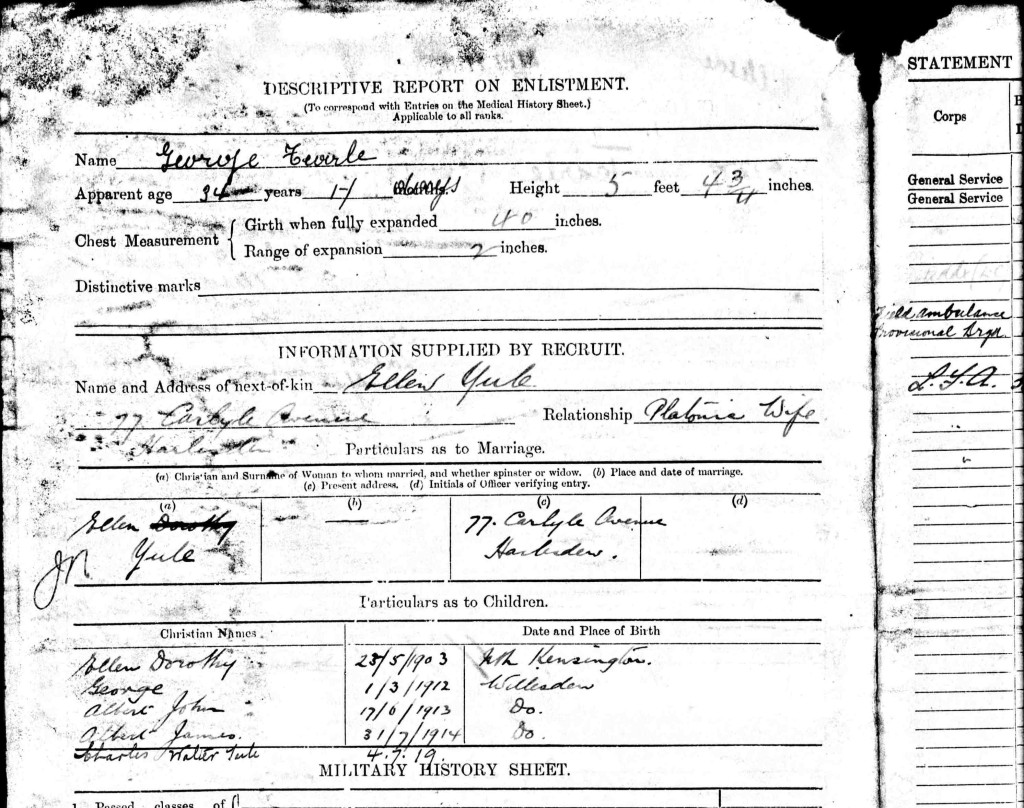 DESCRIPTIVE REPORT ON ENLISTMENT.
(To correspond with Entries on the Medical History Sheet.)
Applicable to all ranks.
Name George
Apparent age 34 years Height 5 feet 4 3/4 inches.
Chest Measurement { Girth when fully expanded 40 inches.
Range of expansion 2 inches.
Distinctive marks
INFORMATION SUPPLIED BY RECRUIT.
Name and Address of next-of-kin Ellen Yule
77 Carlyle Avenue Relationship Platonic Wife
Harlesden Particulars as to Marriage.
(a) Christian and Surname of Woman to whom married, and whether spinster or widow. (b) Place and date of marriage.
(c) Present address. (d) Initials of Officer verifying entry.
(a) (b) (c) (d)
Ellen Dorothy — 77. Carlyle Avenue
Yule Harlesden.
Particulars as to Children.
Christian Names. Date and Place of Birth
Ellen Dorothy 28/5/1903 Nth Kensington.
George 1/3/1912 Willesden
Albert John 17/6/1913 Do.
Albert James. 31/7/1914 Do.
Charles Walter Yule 4.7.19.
MILITARY HISTORY SHEET.
1. Passed classes of
STATEMENT
Corps
General Service
General Service
Field ambulance
Provisional